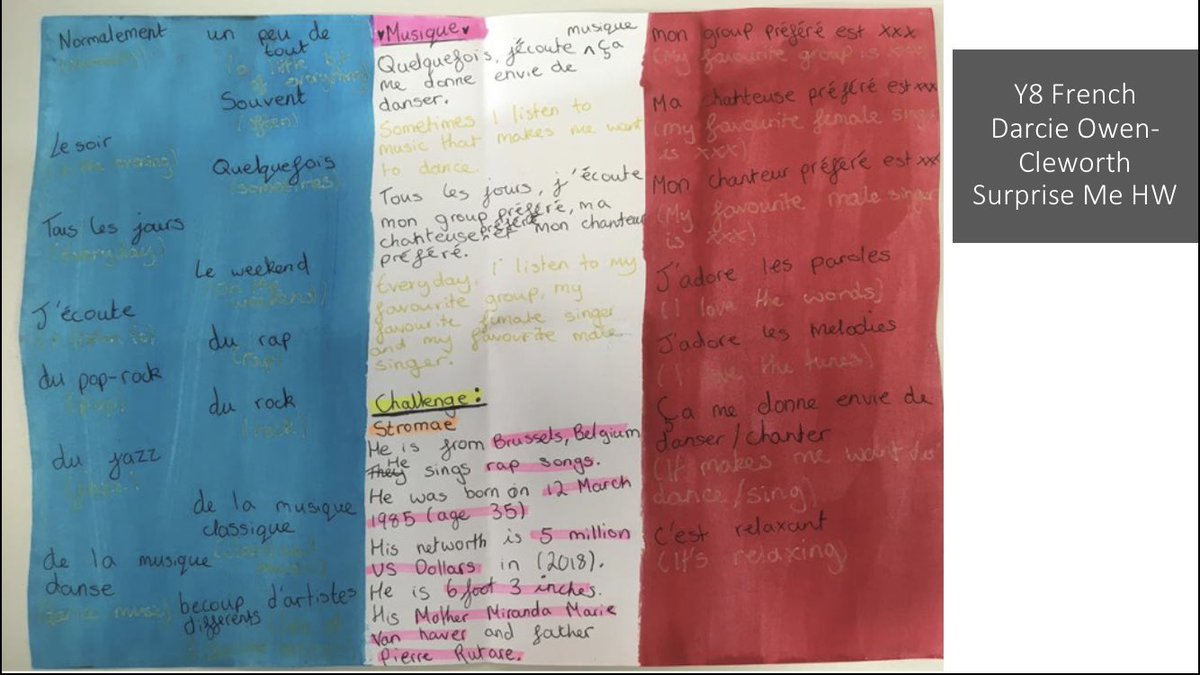 Normalement
(normally)
un peu de
tout
(a little bit
of everything)
Souvent
(often)
Le soir
(in the evening)
Quelquefois
(sometimes)
Tous les jours
(everyday)
Le weekend
(on the
weekend)
J'écoute
(I listen to)
du rap
(rap)
du pop-rock
(pop)
du rock
(rock)
du jazz
de la musique
classique
de la musique
danse
(dance music)
becoup d'artistes
différents
♥Musique♥
musique
Quelquefois, j'écoute ^ Ça
me donne envie de
danser.
Sometimes I listen to
music that makes me want
to dance.
Tous les jours, j'écoute
mon group préféré, ma
préféré
chanteuse et mon chanteur
préféré.
Everyday, I listen to my
favourite group, my
favourite female singer
and my favourite male
singer.
Challenge:
Stromae
He is from Brussels, Belgium
He
They sings rap songs.
He was born on 12 March
1985 (age 35)
His networth is 5 million
US Dollars in (2018).
He is 6 foot 3 inches.
His Mother Miranda Marie
Van haver and father
Pierre Rutare.
mon group préféré est xxx
(My favourite group is xxx)
Ma chanteuse préféré est xxx
(my favourite female singer
is xxx)
Mon chanteur préféré est xxx
(My favourite male singer
is xxx)
J'adore les paroles
(I love the words)
J'adore les melodies
(I love the tunes)
Ça me donne envie de
danser/chanter
(It makes me want to
dance/sing)
c'est relaxant
(It's relaxing)
Y8 French
Darcie Owen-
Cleworth
Surprise Me HW